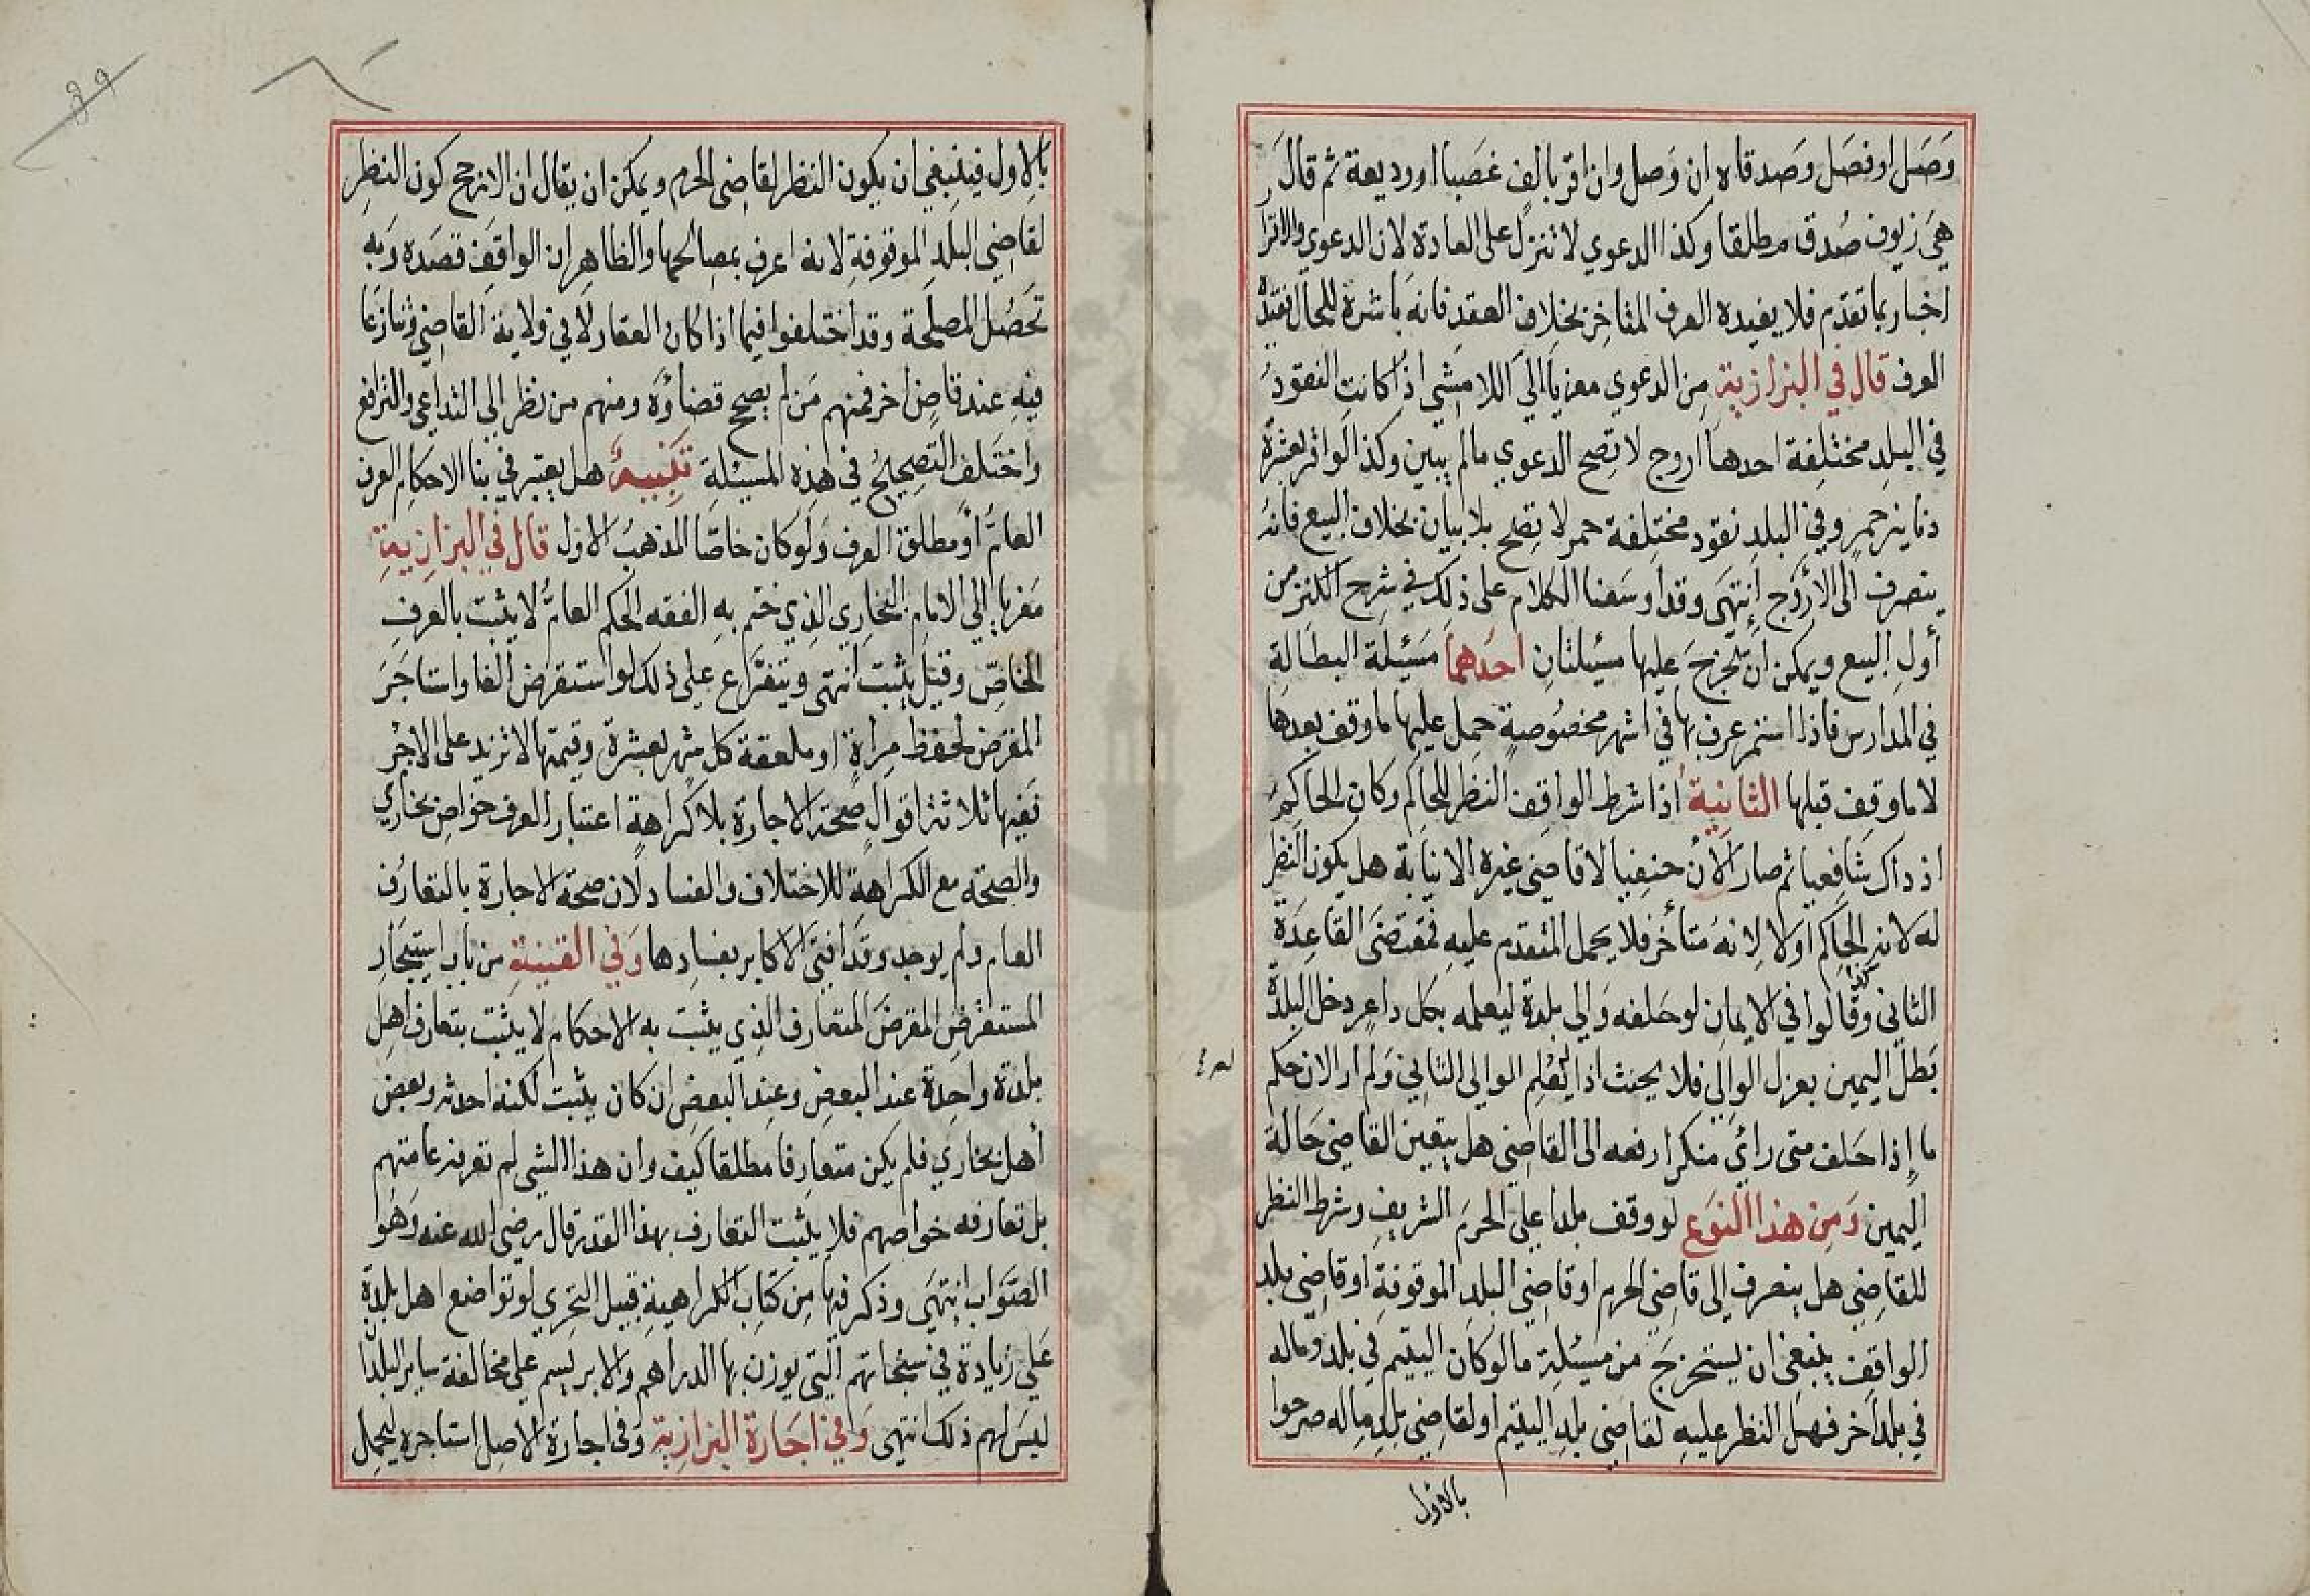 وصل او فصل وصدقاه ان وصل وان اقر بالف غصبا او وديعة ثم قال
هي زيوف صدق مطلقا وكذا الدعوي لا تنزل على العادة لان الدعوي والاقرا
اخبار بما تقدم فلا يفيده العرف المتاخر بخلاف العقد فانه باشره للحال فقيده
العرف قال في البزازية من الدعوي معزيا الى اللامشي اذا كانت النقود
في البلد مختلفة احدها اروج لا تصح الدعوي مالم يبين وكذا لو اقر بعشرة
دنانير حمر وفي البلد نقود مختلفة حمر لا تصح بلا بيان بخلاف البيع فانه
ينصرف الى الاروج انتهى وقد اوسعنا الكلام على ذلك في شرح الكنز من
أول البيع ويمكن ان تخرج عليها مسئلتان احدهما مسئلة البطالة
في المدارس فاذا استمر عرف بها في اشهر مخصوصة حمل عليها ما وقف بعدها
لا ما وقف قبلها الثانية اذا شرط الواقف النظر للحاكم وكان الحاكم
اذ ذاك شافعيا ثم صار الآن حنفيا لا قاضي غيره الا نيابة هل يكون النظر
له لانه الحاكم او لا لانه متأخر فلا يحمل المتقدم عليه فمقتضى القاعدة
الثاني وكذا قالوا في الايمان لو حلفه والي بلدة ليعلمه بكل داعر دخل البلدة
بطل اليمين بعزل الوالي فلا يحنث اذا لم يعلم الوالي الثاني ولم ار الان حكم
ما إذا حلف متى رائي منكرا رفعه الى القاضي هل يتعين القاضي حالة
اليمين ومن هذا النوع لو وقف بلدا على الحرم الشريف وشرط النظر
للقاضي هل ينصرف إلى قاضي الحرم او قاضي البلد الموقوفة او قاضي بلد
الواقف ينبغي ان يستخرج من مسئلة ما لو كان اليتيم في بلد وماله
في بلد آخر فهل النظر عليه لقاضي بلد اليتيم او لقاضي بلد ماله صرحوا
بالاول
بالاول فينبغي ان يكون النظر لقاضي الحرم ويمكن ان يقال ان الارجح كون النظر
لقاضي البلد الموقوفة لانه اعرف بمصالحها والظاهر ان الواقف قصده وبه
تحصل المصلحة وقد اختلفوا فيما اذا كان العقار لا في ولاية القاضي وتنازعا
فيه عند قاض اخر فمنهم من لم يصح قضاؤه ومنهم من نظر الى التداعي والترافع
واختلف التصحيح في هذه المسئلة تنبيه هل يعتبر في بنا الاحكام العرف
العام او مطلق العرف ولو كان خاصا المذهب الاول قال في البزازية
معزيا إلي الامام البخاري الذي ختم به الفقه الحكم العام لا يثبت بالعرف
الخاص وقيل يثبت انتهى ويتفرع على ذلك لو استقرض الفا واستاجر
المقرض لحفظ مرآة او ملعقة كل شهر بعشرة وقيمتها لا تزيد على الاجر
ففيها ثلاثة اقوال صحة الاجارة بلا كراهة اعتبارا لعرف خواص بخاري
والصحة مع الكراهة للاختلاف والفساد لان صحة الاجارة بالتعارف
العام ولم يوجد وقد افتى الاكابر بفسادها وفي القنية من باب استيجار
المستقرض المقرض المتعارف الذي يثبت به الاحكام لا يثبت بتعارف اهل
بلدة واحدة عند البعض وعند البعض ان كان يثبت لكنه احدثه بعض
أهل بخاري فلم يكن متعارفا مطلقا كيف وان هذا الشي لم تعرفه عامتهم
بل تعارفه خواصهم فلا يثبت التعارف بهذا القدر قال رضي الله عنه وهو
الصواب انتهى وذكر فيها من كتاب الكراهية قبيل التحري لو تواضع اهل بلدة
على زيادة في سنجاتهم التي يوزن بها الدراهم والابريسم على مخالفة ساير البلدا
ليس لهم ذلك انتهى وفي اجارة البزازية وفي اجارة الاصل استاجره ليحمل